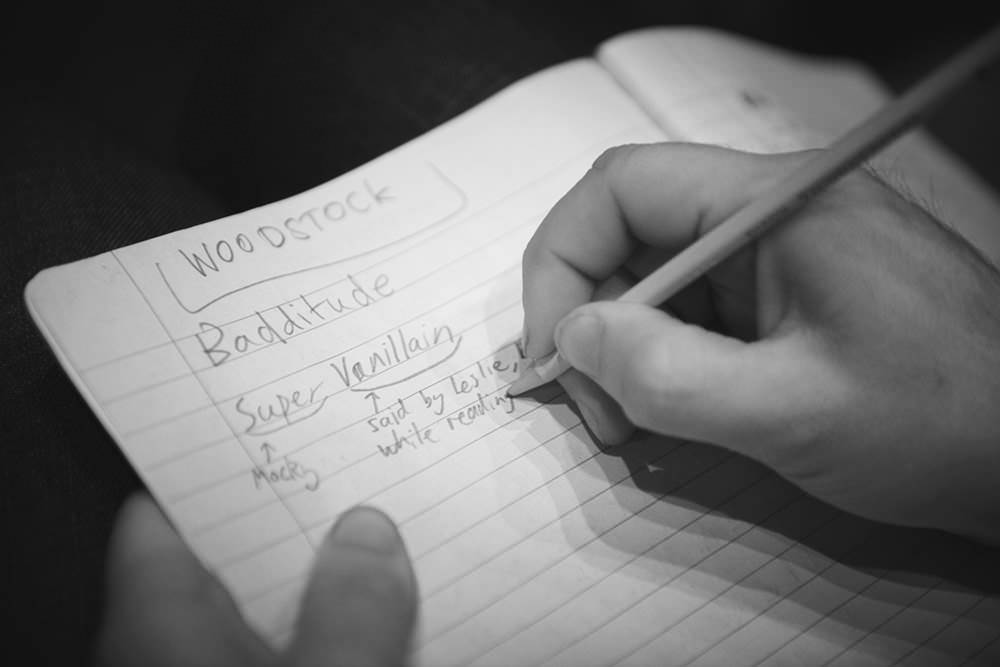 WOODSTOCK
Badditude
Super Vanillain
said by Leslie,
Mocky while reading